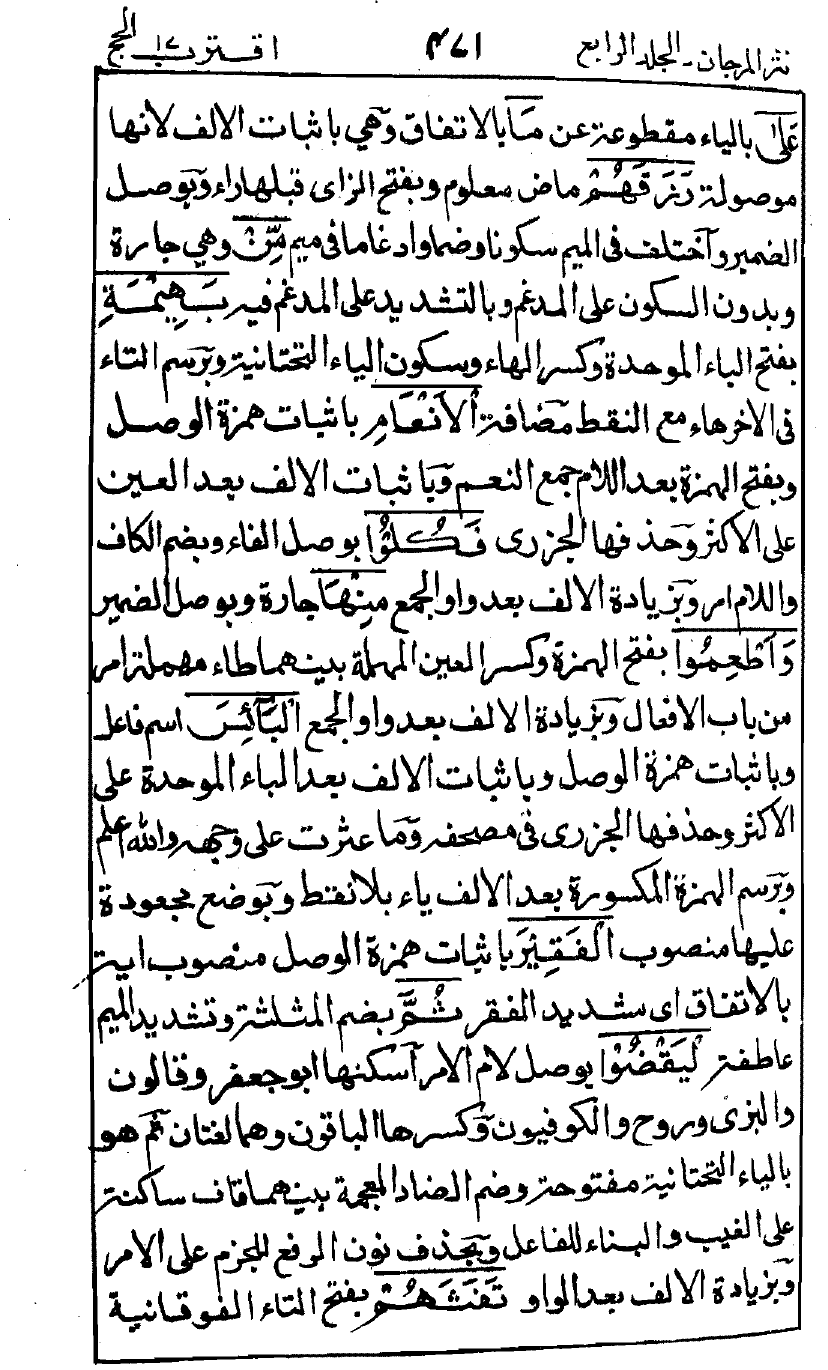 نثر المرجان - الجلد الرابع ٤٧١ اقترب ١٧ الحج
عَلىٰ بالياء مقطوعة عن مَا بالاتفاق وهي باثبات الالف لانها
موصولة رَزَقَهُمْ ماض معلوم وبفتح الزاى قبلها راء وبوصل
الضمير واختلف فى الميم سكونا وضما وادغاما فى ميم مِّنْ وهي جارة
وبدون السكون على المدغم وبالتشديد على المدغم فيه بَهِيْمَةِ
بفتح الباء الموحدة وكسر الهاء وسكون الياء التحتانية وبرسم التاء
فى الاخر هاء مع النقط مضافة الْأَنْعَامِ باثبات همزة الوصل
وبفتح الهمزة بعد اللام جمع النعم وباثبات الالف بعد العين
على الاكثر وحذفها الجزرى فَكُلُوْا بوصل الفاء وبضم الكاف
واللام امر وبزيادة الالف بعد واو الجمع مِنْهَا جارة وبوصل الضمير
وَأَطْعِمُوا بفتح الهمزة وكسر العين المهملة بينهما طاء مهملة امر
من باب الافعال وبزيادة الالف بعد واو الجمع الْبَآئِسَ اسم فاعل
وباثبات همزة الوصل وباثبات الالف بعد الباء الموحدة على
الاكثر وحذفها الجزرى فى مصحفه وما عثرت على وجهه والله اعلم
وبرسم الهمزة المكسورة بعد الالف ياء بلا نقط وبوضع مجعودة
عليها منصوب الْفَقِيْرَ باثبات همزة الوصل منصوب اية
بالاتفاق اى شديد الفقر ثُمَّ بضم المثلثة وتشديد الميم
عاطفة لْيَقْضُوْا بوصل لام الامر اسكنها ابو جعفر وقالون
والبزى وروح والكوفيون وكسرها الباقون وهما لغتان ثم هو
بالياء التحتانية مفتوحة وضم الضاد المعجمة بينهما قاف ساكنة
على الغيب والبناء للفاعل وبحذف نون الرفع للجزم على الامر
وبزيادة الالف بعد الواو تَفَثَهُمْ بفتح التاء الفوقانية